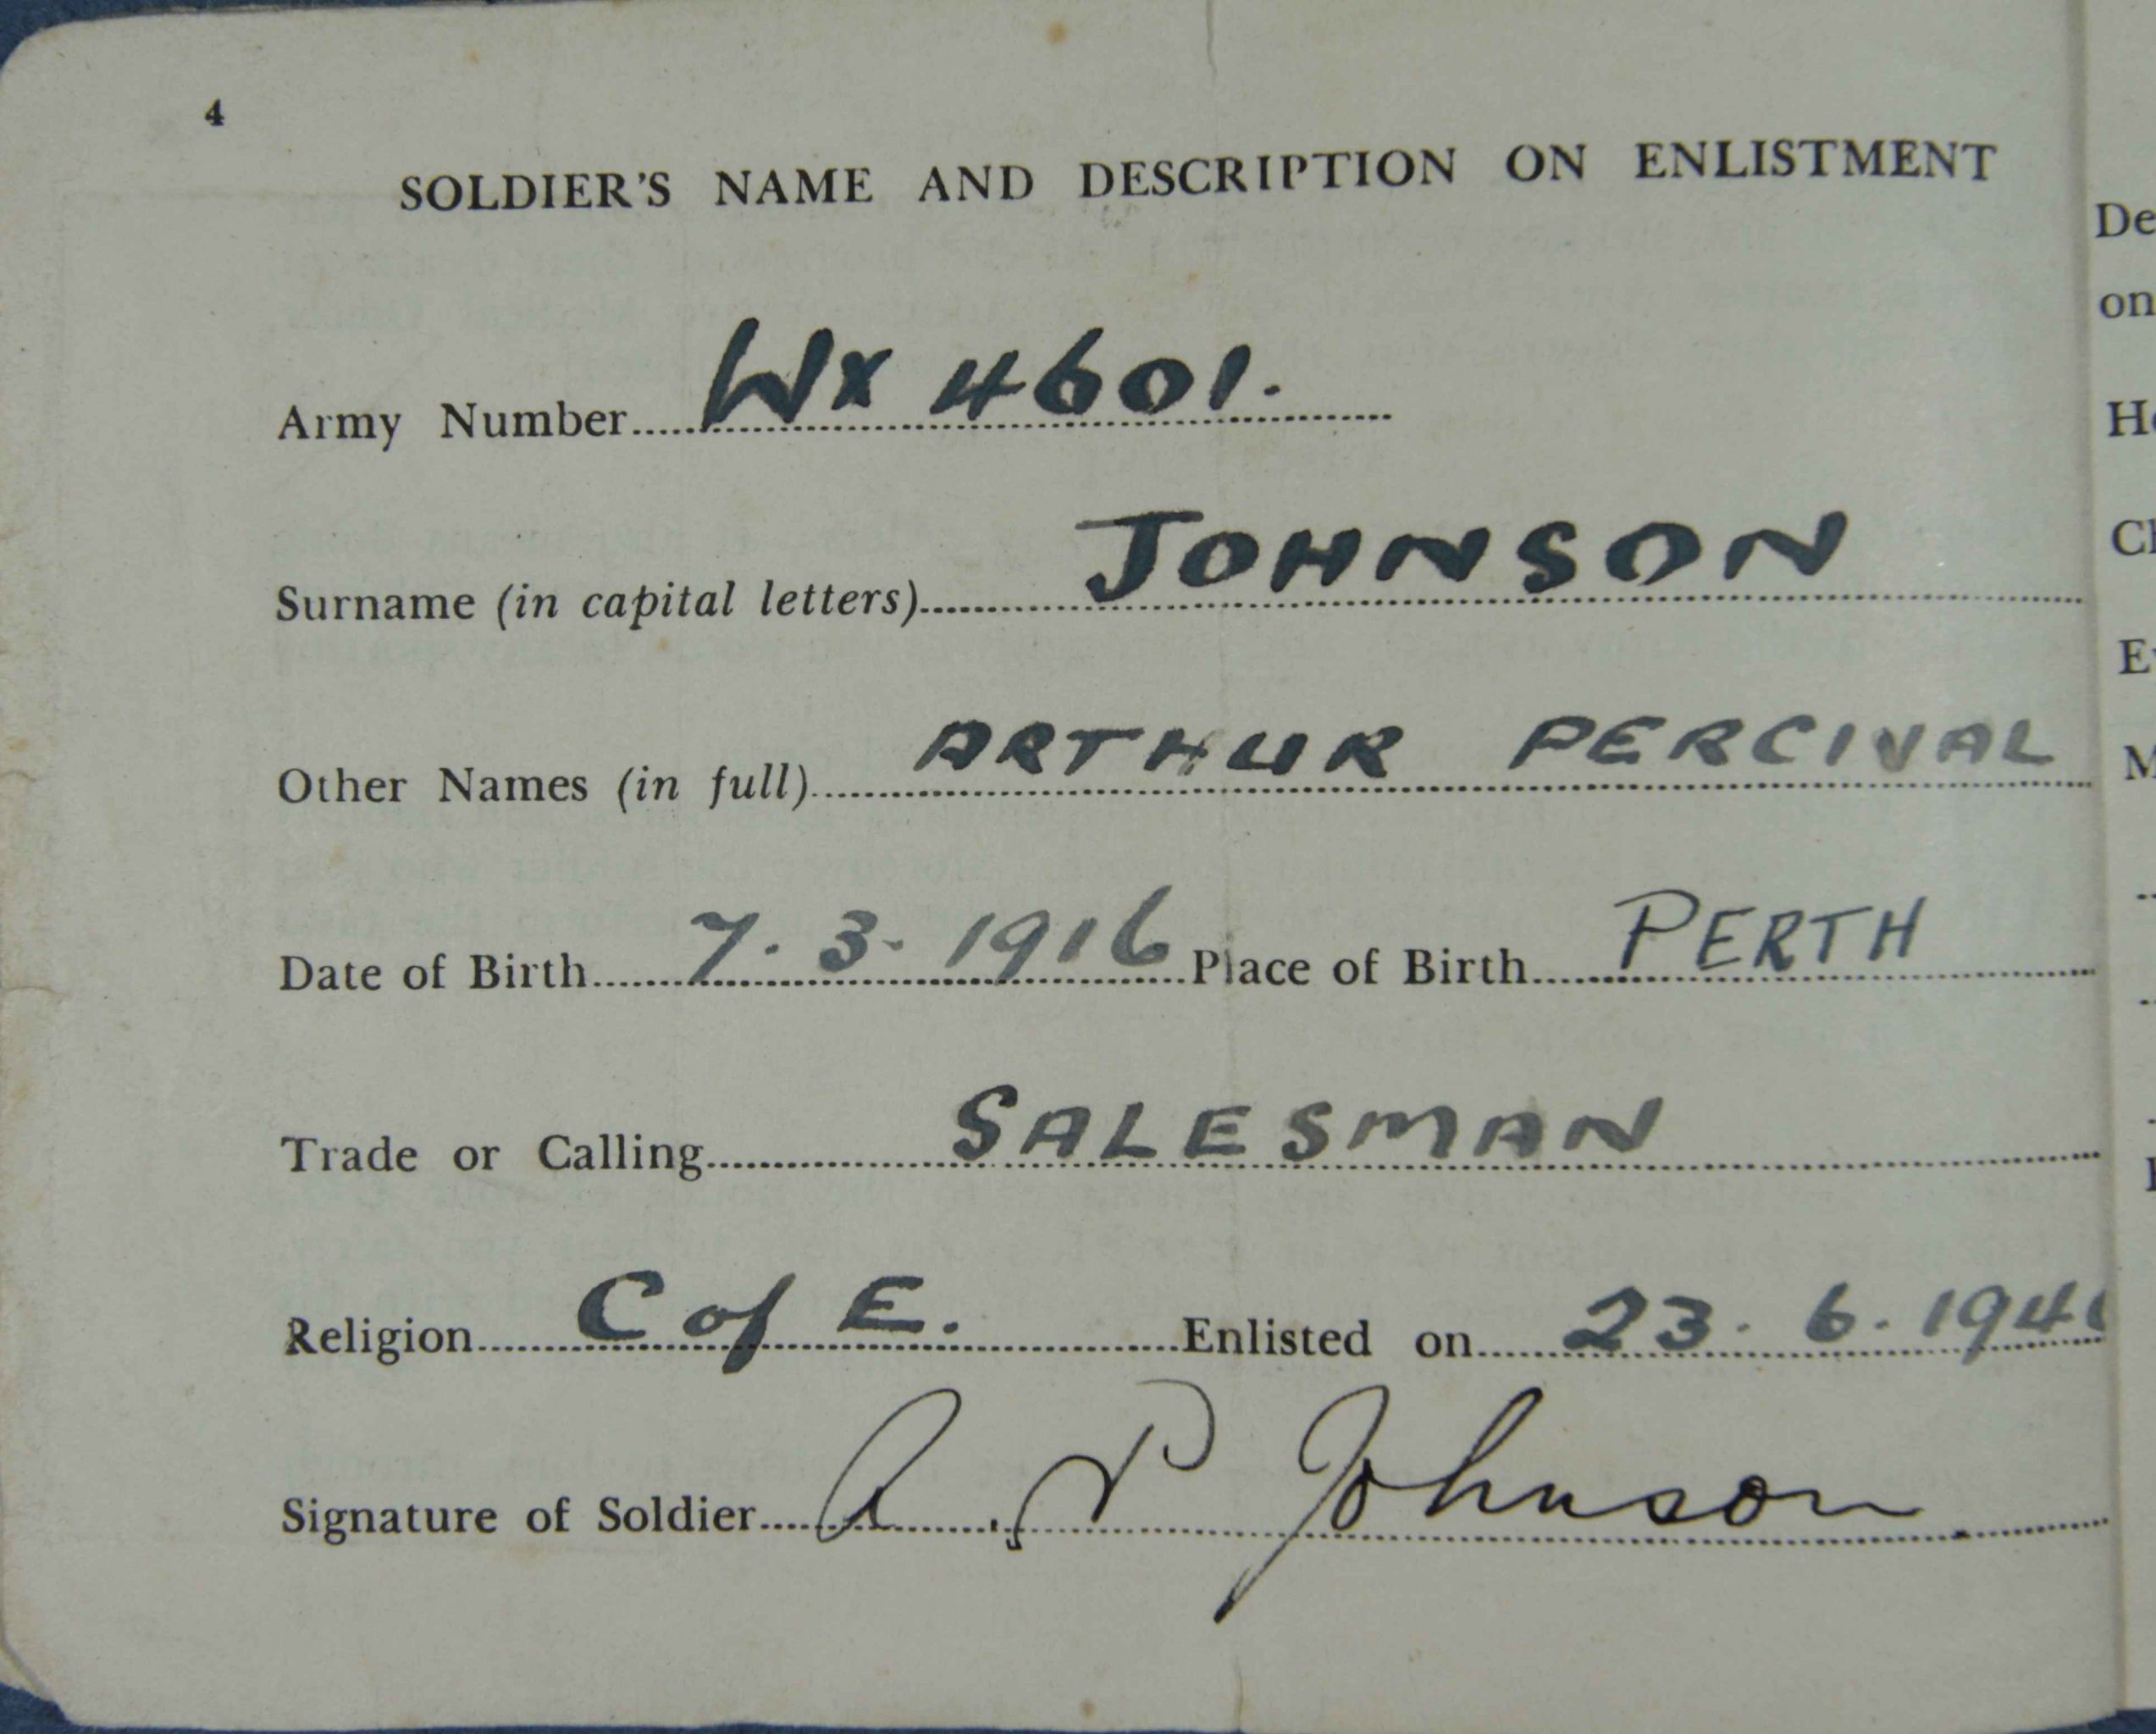 4
SOLDIER'S NAME AND DESCRIPTION ON ENLISTMENT
Army Number WX 4601.
Surname (in capital letters) JOHNSON
Other Names (in full) ARTHUR PERCIVAL
Date of Birth 7. 3. 1916 Place of Birth PERTH
Trade or Calling SALESMAN
Religion C of E. Enlisted on 23. 6. 194
Signature of Soldier A. P Johnson.
De
on